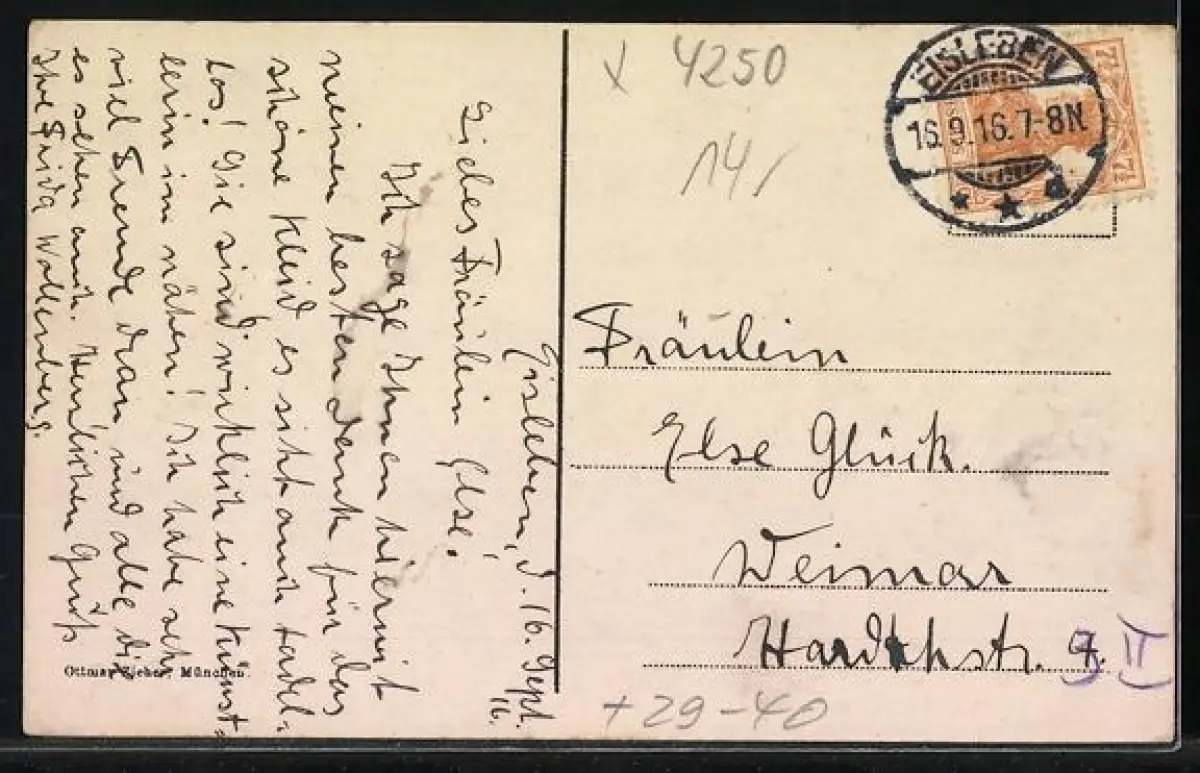 Eisleben, d. 16. Sept. 16.
Liebes Fräulein Else!
Ich sage Ihnen hiermit
meinen besten Dank für das
schöne Kleid es sitzt auch tadel-
los! Sie sind wirklich eine Künst-
lerin im nähen! Ich habe sehr
viel Freude dran und alle die
es sehen auch. Herzlichen Gruß
Ihre Frida Wallenberg.
Ottmar Zieher, München.
+ 4250
14/
EISLEBEN
16.9.16.7-8N
* * a
7½
Fräulein
Else Glück.
Weimar
Hardthstr. 7. II
+ 29-40